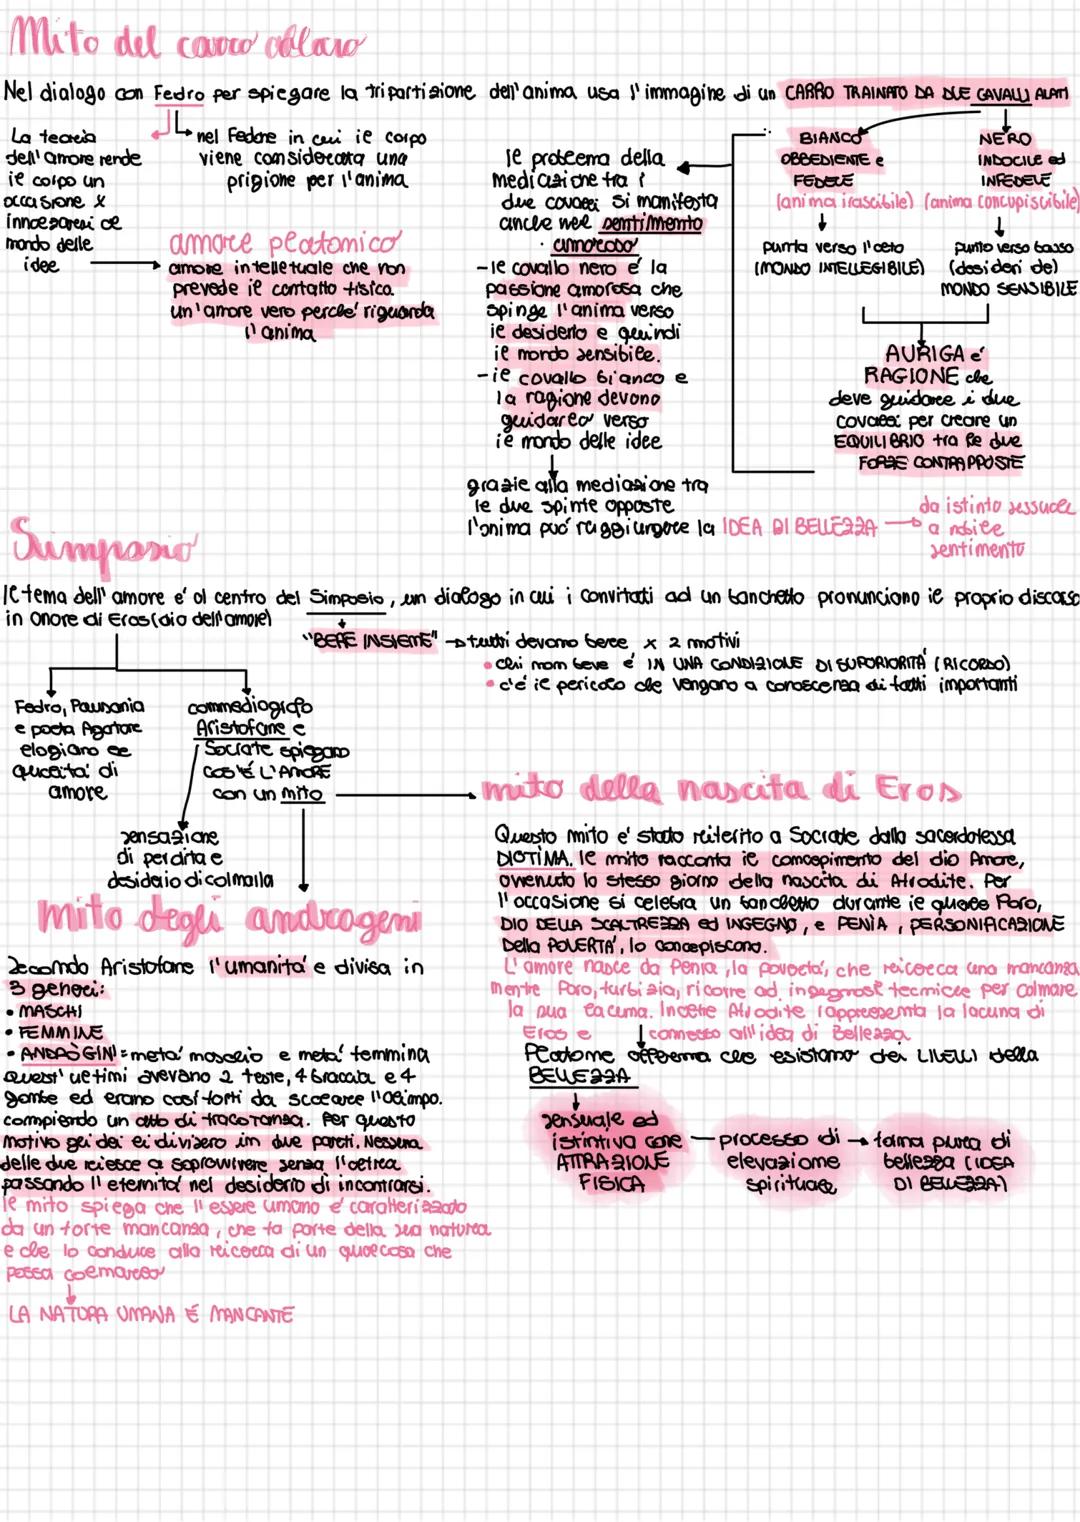 Mito del carro alato
Nel dialogo con Fedro per spiegare la tripartizione dell'anima usa l'immagine di un CARRO TRAINATO DA DUE CAVALLI ALATI
La teoria
dell'amore rende
il corpo un
occasione x
innalzarsi al
mondo delle
idee
nel Fedone in cui il corpo
viene considerata una
prigione per l'anima
amore platonico
amore intelletuale che non
prevede il contatto fisico.
un'amore vero perché riguarda
l'anima
le problema della
mediazione tra i
due cavalli si manifesta
anche nel sentimento
amoroso
-le cavallo nero é la
passione amorosa che
spinge l'anima verso
il desiderio e quindi
il mondo sensibile.
-il cavallo bianco e
la ragione devono
guidarlo verso
il mondo delle idee
grazie alla mediazione tra
le due spinte opposte
l'anima può raggiungere la IDEA DI BELLEZZA
da istinto sessuale
a nobile
sentimento
BIANCO
OBBEDIENTE e
FEDELE
(anima irascibile)
punta verso l'alto
(MONDO INTELLEGIBILE)
NERO
INDOCILE ed
INFEDELE
(anima concupiscibile)
punto verso basso
(desideri del
MONDO SENSIBILE
AURIGA é
RAGIONE che
deve guidare i due
cavalli per creare un
EQUILIBRIO tra le due
FORZE CONTRAPPOSTE
Simposio
Il tema dell'amore e' al centro del Simposio, un dialogo in cui i convitati ad un banchetto pronunciono il proprio discorso
in onore di Eros(dio dell'amore)
"BERE INSIEME" → tutti devono bere x 2 motivi
• chi non beve é IN UNA CONDIZIONE DI SUPORIORITÀ (RICORDO)
• c'é il pericolo che vengano a conoscenza di fatti importanti
Fedro, Pausania
e poeta Agatone
elogiano le
qualità di
amore
commediografo
Aristofane e
Socrate spiegano
COS'É L'AMORE
con un mito
sensazione
di perdita e
desiderio di colmalla
mito della nascita di Eros
Questo mito e' stato riferito a Socrate dalla sacerdotessa
DIOTÌMA. Il mito racconta il concepimento del dio Amore,
avvenuto lo stesso giorno della nascita di Afrodite. Per
l'occasione si celebra un banchetto durante il quale Poro,
DIO DELLA SCALTREZZA ed INGEGNO, e PENÌA, PERSONIFICAZIONE
Della POVERTA', lo concepiscono.
L'amore nasce da Penia, la povertà, che ricerca una mancanza
mentre Poro, furbizia, ricorre ad ingegnose tecniche per colmare
la sua lacuna. Inoltre Afrodite rappresenta la lacuna di
Eros e connesso all'idea di Bellezza
Platone afferma che esistono dei LIVELLI della
BELLEZZA
sensuale ed
istintiva come
ATTRAZIONE
FISICA
processo di
elevazione
spirituale
forma pura di
bellezza (IDEA
DI BELLEZZA)
Mito degli androgeni
Secondo Aristofane l'umanità e divisa in
3 generi:
• MASCHI
• FEMMINE
• ANDRÒGINI = metá maschio e metá femmina
Quest'ultimi avevano 2 teste, 4 braccia e 4
gambe ed erano così forti da scalare l'Olimpo.
compiendo un atto di tracotanza. Per questo
motivo gli dei li divisero in due parti. Nessuna
delle due riesce a sopravvivere senza l'altra
passando l'eternità nel desiderio di incontrarsi.
Il mito spiega che l'essere umano é caratterizzato
da un forte mancanza, che fa parte della sua natura
e che lo conduce alla ricerca di un qualcosa che
possa colmarlo
LA NATURA UMANA É MANCANTE